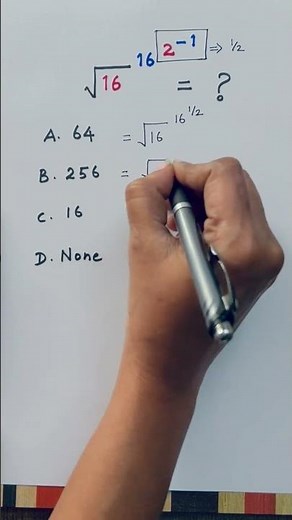 √16^16^2^-1 ⇒ 1/2
= ?
A. 64 = √16^16^1/2
B. 256 = √
C. 16
D. None